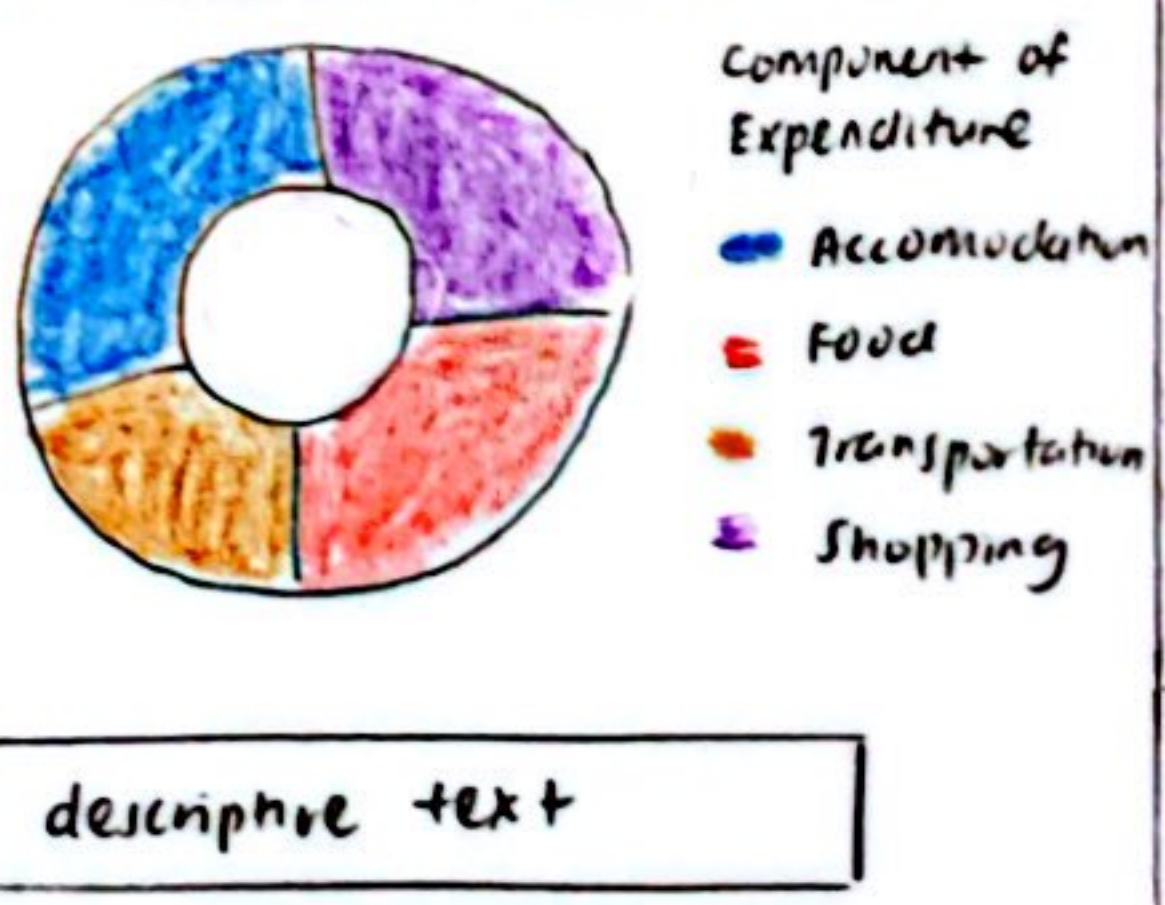 Component of
Expenditure
Accomodation
Food
Transportation
Shopping
descriptive text